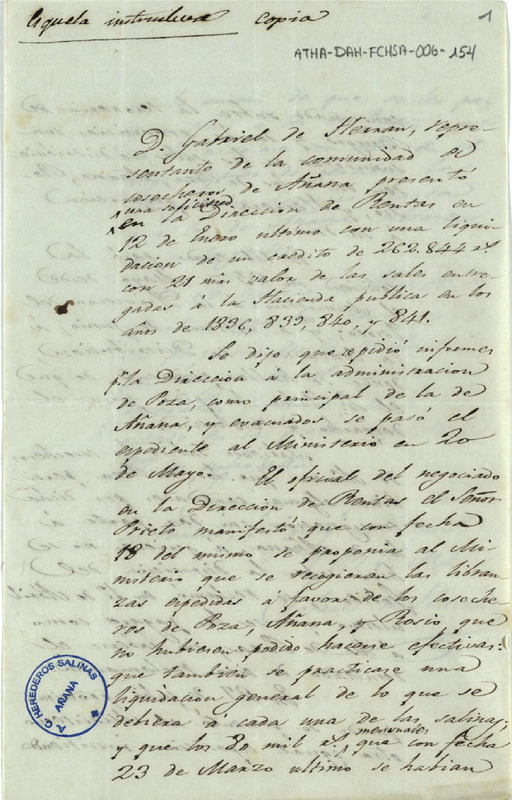 Esquela instructiva copia
1
ATHA-DAH-FCHSA-006-154
D. Gabriel de Herran, repre-
sentante de la comunidad de
cosecheros de Añana presentó
una solicitud
en la Direccion de Rentas en
12 de Enero ultimo con una liqui-
dacion de un credito de 262.844 rs.
con 21 mrs valor de las sales entre-
gadas á la Hacienda publica en los
años de 1836, 839, 840, y 841.
Se dijo que se pidió informes
pr. la Direccion á la administracion
de Poza, como principal de la de
Añana, y evacuados se pasó el
espediente al Ministerio en 20
de Mayo. El oficial del negociado
en la Direccion de Rentas el Señor
Prieto manifestó que con fecha
18 del mismo se proponia al Mi-
nisterio que se recogieran las libran-
zas espedidas á favor de los coseche-
ros de Poza, Añana, y Rosio que
no hubieren podido hacerse efectivas:
que tambien se practicase una
liquidacion general de lo que se
debiera á cada una de las salinas,
mensuales
y que los 80 mil rs. que con fecha
23 de Marzo ultimo se habian
A. C. HEREDEROS SALINAS
AÑANA